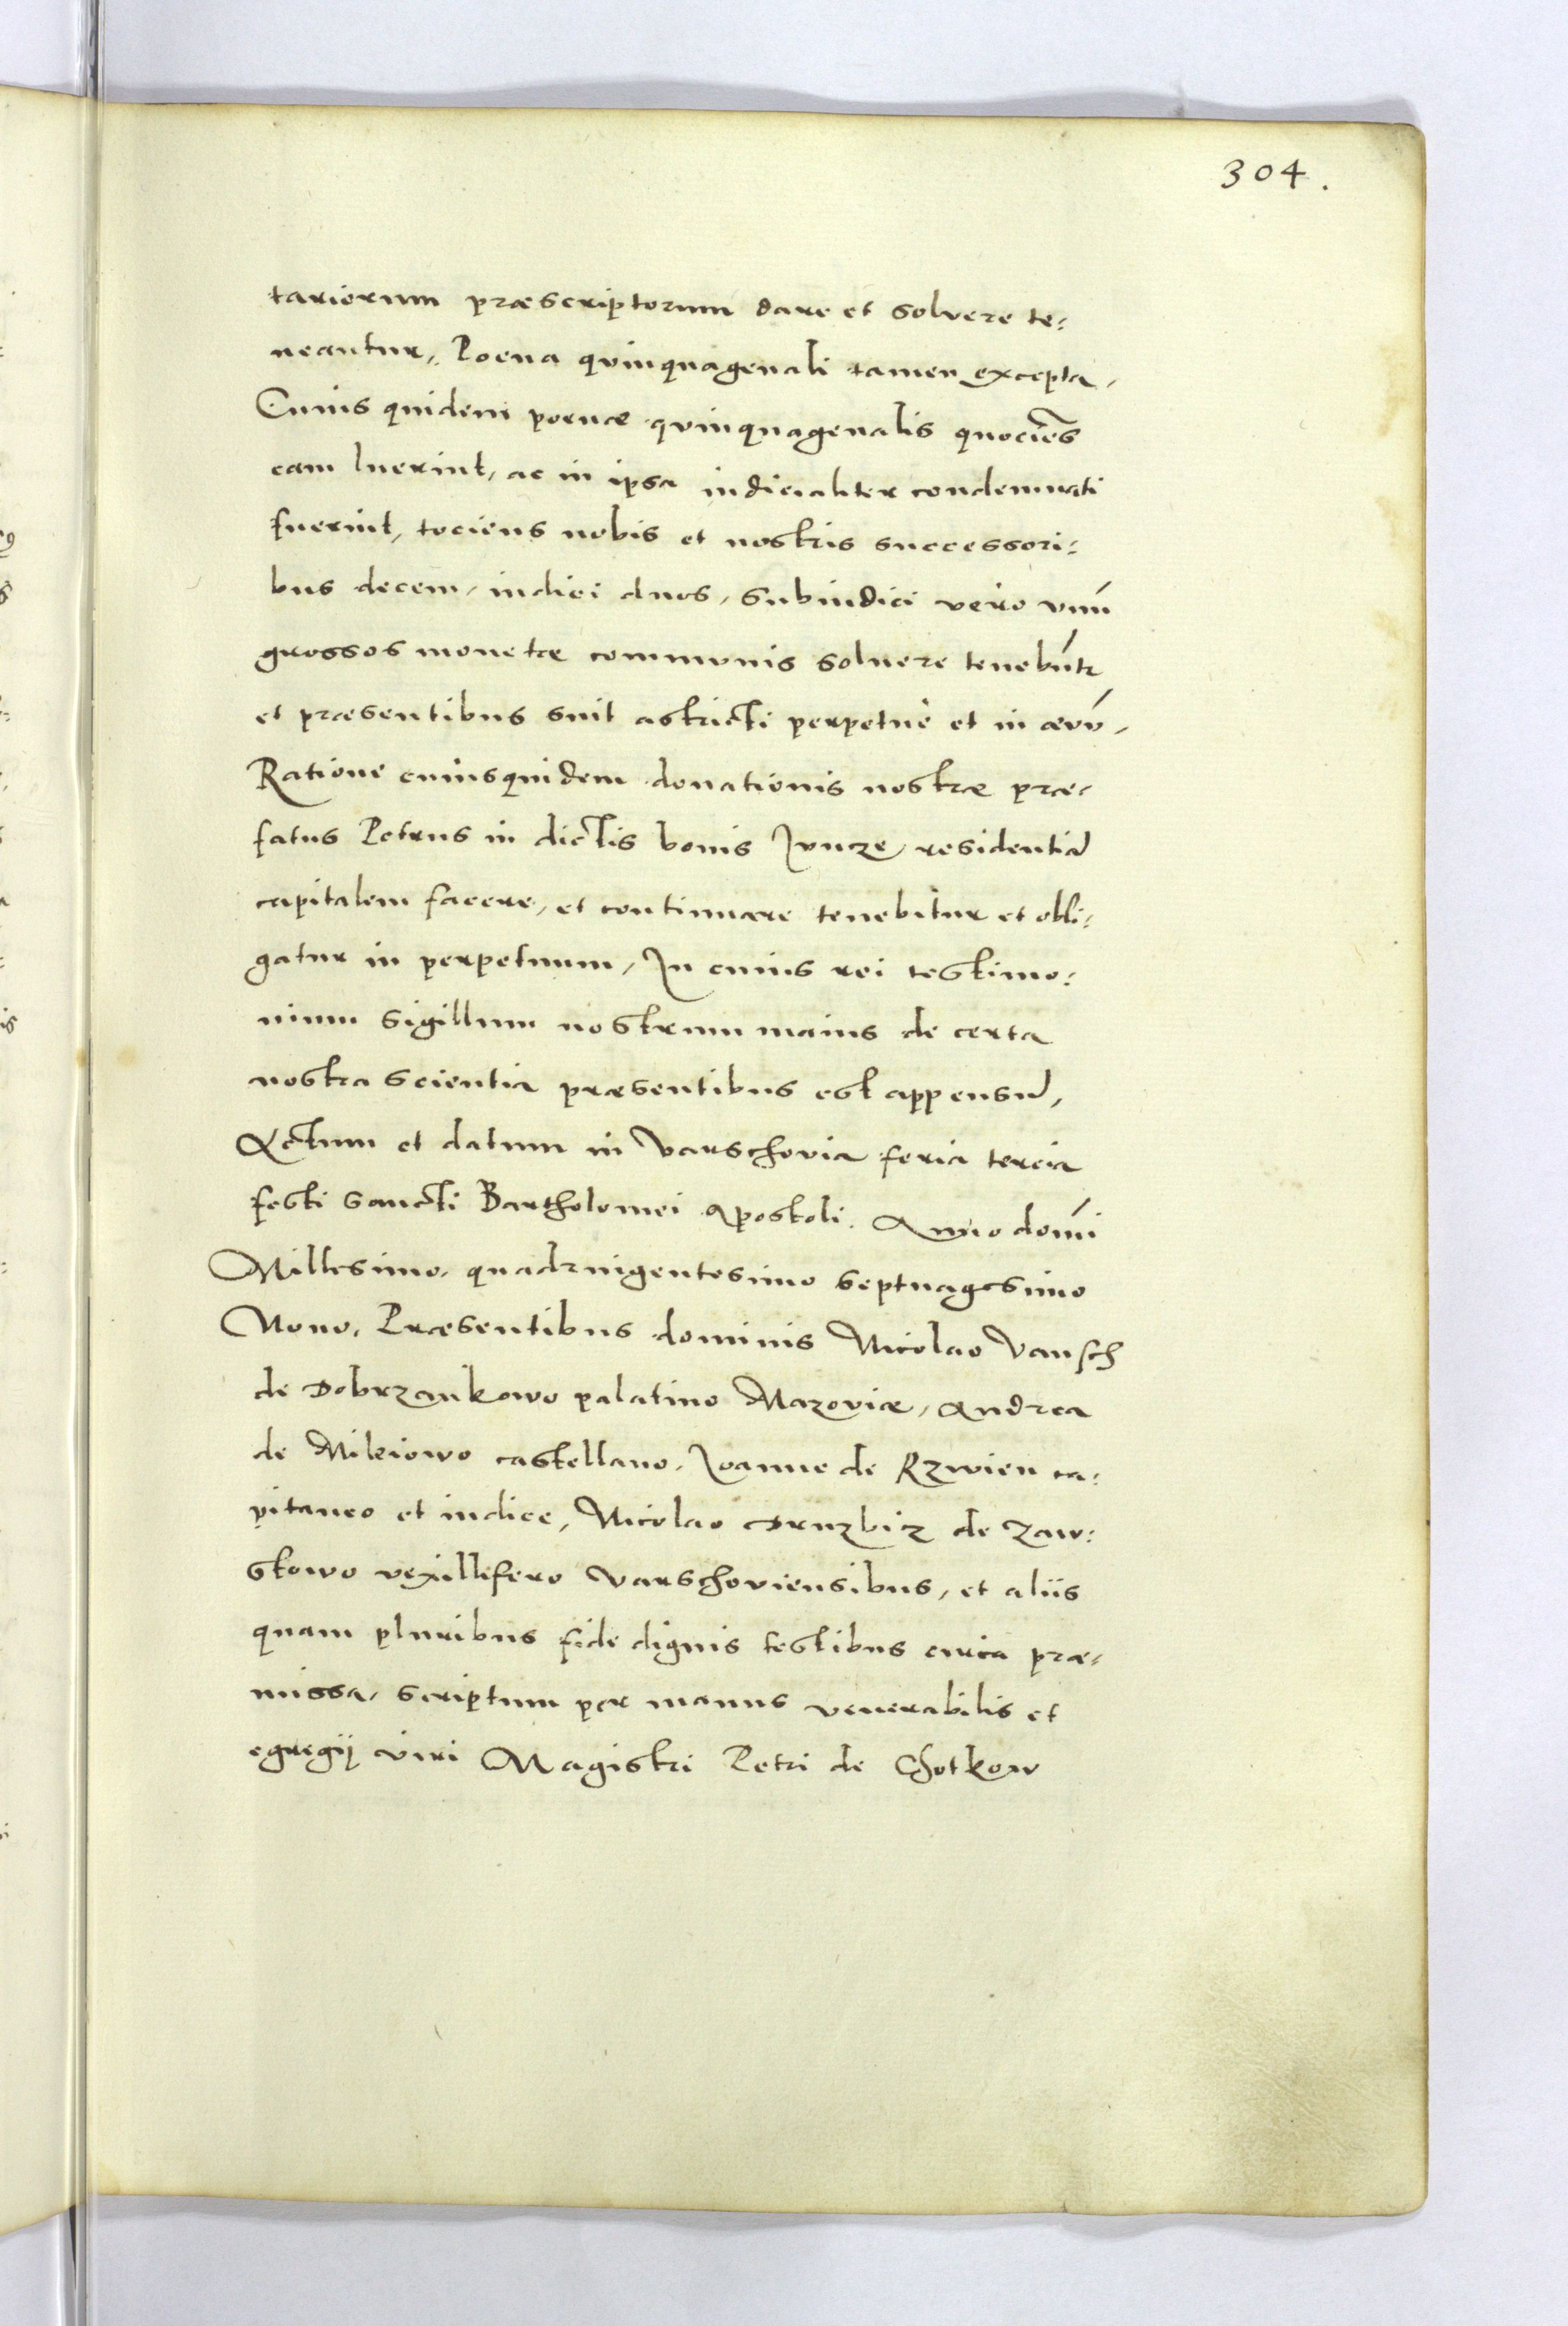 304.
tariorum præscriptorum dare et solvere te:
neantur, Poena quinquagenali tamen excepta,
Cuius quidem poenæ quinquagenalis quociēs
eam luerint, ac in ipsa iudicialiter condemnati
fuerint, tociens nobis et nostris successori:
bus decem, iudici duos, Subiudici vero vnū
grossos monetæ communis soluere tenebūtr
et præsentibus sunt astricti perpetuè et in ævū,
Ratione cuiusquidem donationis nostræ præ:
fatus Petrus in dictis bonis Juncze residentiā
capitalem facere, et continuare tenebitur et obli:
gatur in perpetuum, In cuius rei testimo:
nium Sigillum nostrum maius de certa
nostra scientia præsentibus est appensū,
Actum et datum in Varschovia feria tercia
festi sancti Bartholomei Apostoli. Anno domī
Millesimo, quadringentesimo septuagesimo
Nono, Præsentibus dominis Nicolao Vansch
de Dobrzankowo palatino Mazoviæ, Andrea
de Mikiowo castellano, Joanne de Rzwien ca:
pitaneo et iudice, Nicolao Druzbicz de Zaw:
stowo vexillifero Varschoviensibus, et aliis
quam pluribus fide dignis testibus circa præ:
missa, Scriptum per manus venerabilis et
egregij viri Magistri Petri de Chotkow